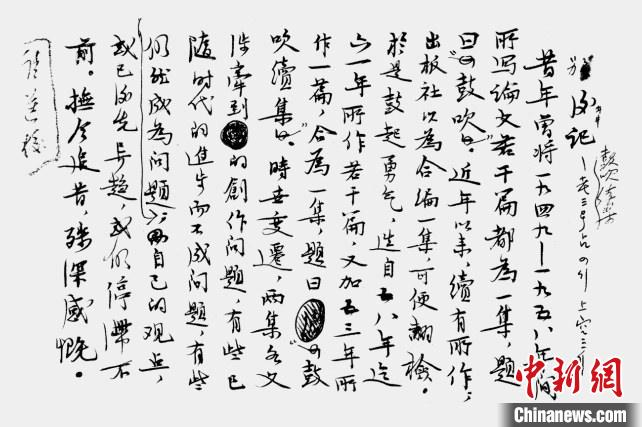 后记
昔年曾将一九四九—一九五八年间
所写论文若干篇都为一集,题
曰《鼓吹》。近年以来,续有所作,
出版社以为合编一集,可便翻检。
於是鼓起勇气,选自五八年迄
六一年所作若干篇,又加五三年所
作一篇,合为一集,题曰《鼓
吹续集》。时世变迁,两集各文
涉牵到的創作问题,有些已
随时代的进步而不成问题,有些
仍然成为问题;自己的观点,
或已,或仍停滞不
前。抚今追昔,殊深感慨。
中新网
Chinanews.com